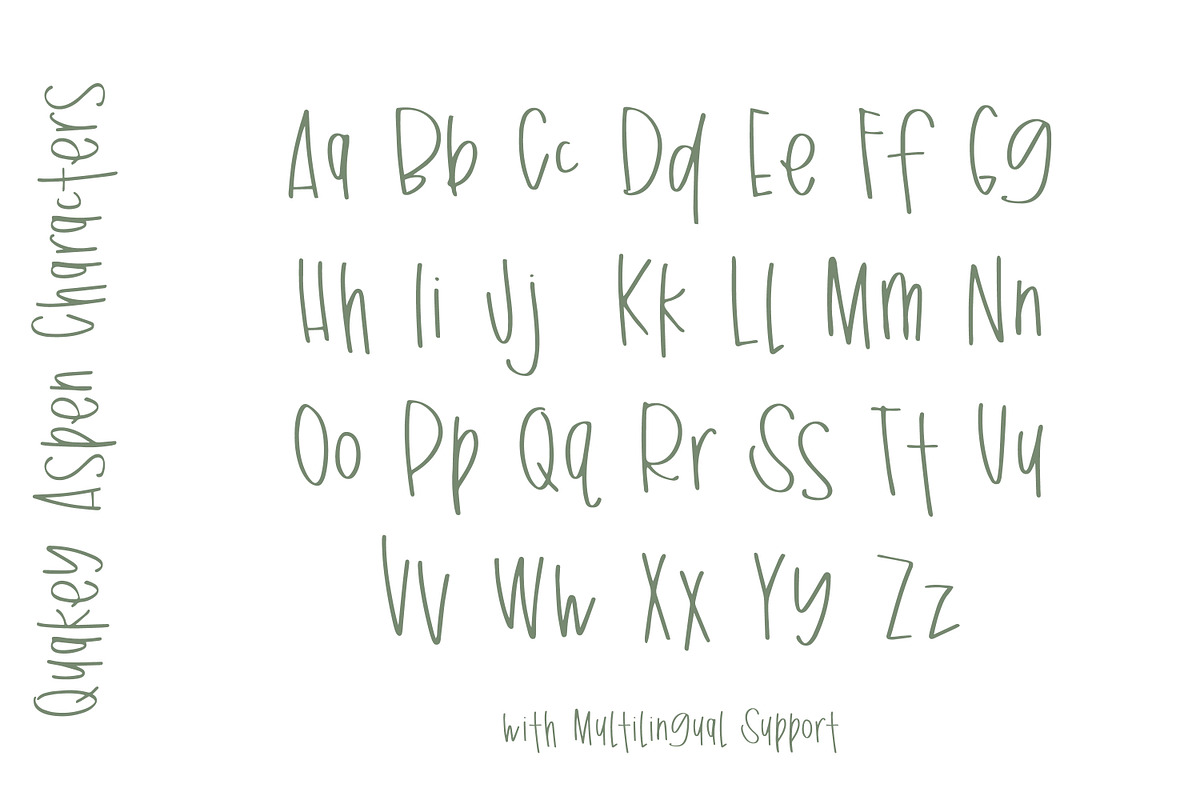 Quakey Aspen Characters
Aa Bb Cc Dd Ee Ff Gg
Hh Ii Jj Kk Ll Mm Nn
Oo Pp Qq Rr Ss Tt Uu
Vv Ww Xx Yy Zz
with Multilingual Support